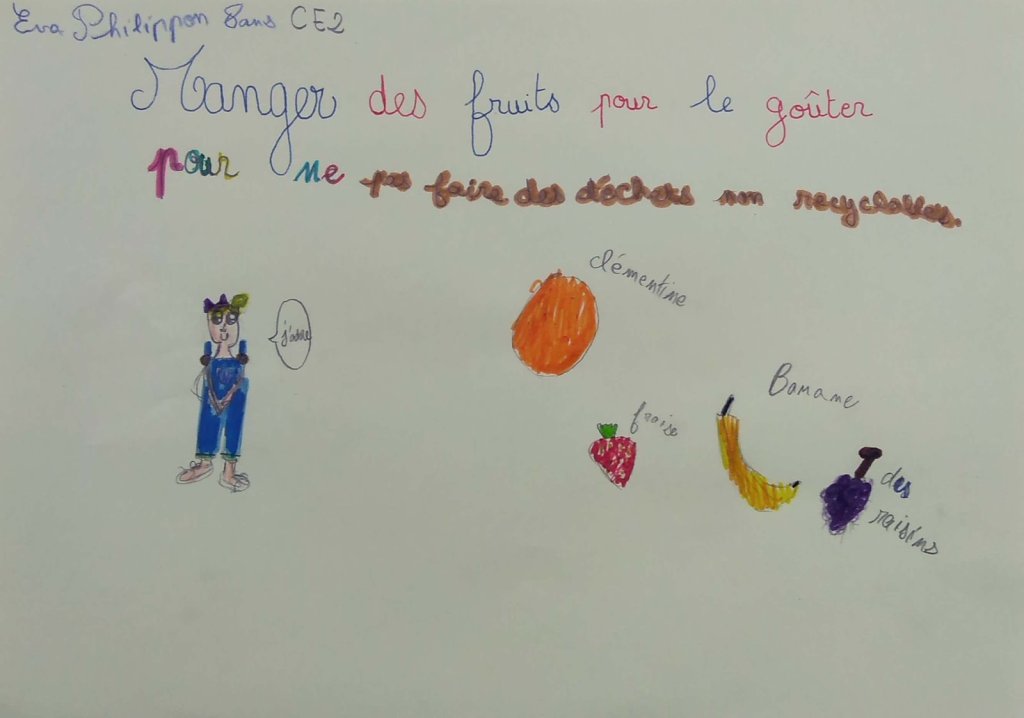 Eva Philippon 8ans CE2
Manger des fruits pour le goûter
pour ne pas faire des déchets non recyclables.
clémentine
j'adore
Banane
fraise
des
raisins